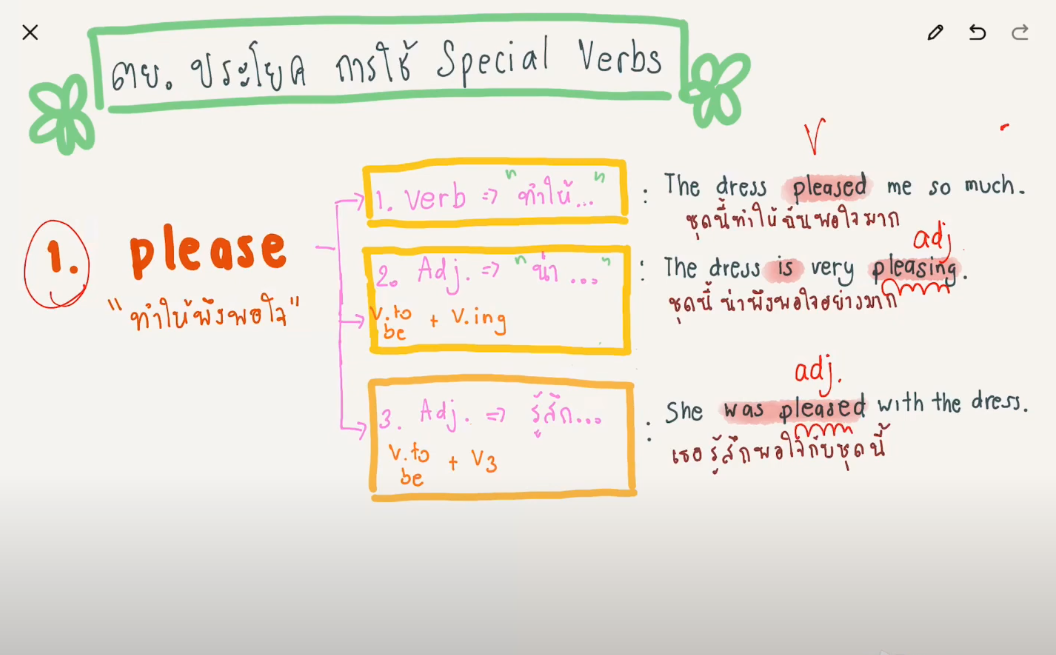 ตย. ประโยค การใช้ Special Verbs
1. please
"ทำให้พึงพอใจ"
1. Verb => "ทำให้..."
: The dress pleased me so much.
V
ชุดนี้ทำให้ฉันพอใจมาก
2. Adj. => "น่า ..."
v.to be + V.ing
: The dress is very pleasing.
adj
ชุดนี้ น่าพึงพอใจอย่างมาก
3. Adj. => รู้สึก...
v.to be + V3
: She was pleased with the dress.
adj.
เธอ รู้สึกพอใจกับชุดนี้